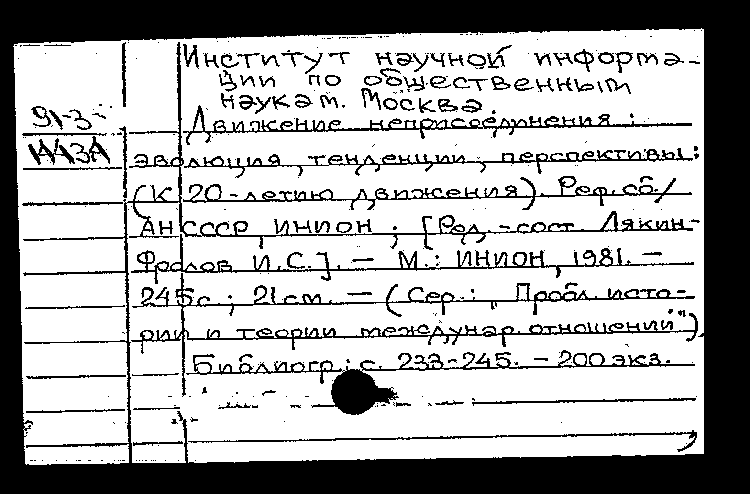 Институт научной информа-
ции по общественным
наукам. Москва.
91-3-
Движение неприсоединения:
эволюция, тенденции, перспективы:
(К 20-летию движения). Реф. сб./
АН СССР, ИНИОН; [Ред.-сост. Лякин-
Фролов И.С.]. — М.: ИНИОН, 1981. —
245с.; 21см. — (Сер.: "Пробл. исто-
рии и теории междунар. отношений").
Библиогр.: с. 233-245. — 200 экз.